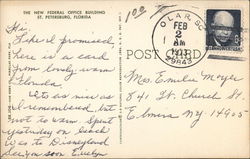 THE NEW FEDERAL OFFICE BUILDING
ST. PETERSBURG, FLORIDA
Hi,
I promised,
here is a card
from lovely warm
Florida
as nice as
I remembered, but
not so warm. Spent
yesterday on beach
to Disneyland
soon Evelyn
POST CARD
OLAR, SC
FEB
2
AM
1973
29843
Mrs. Emilie Moyer
841 W. Church St
Elmira NY 14905